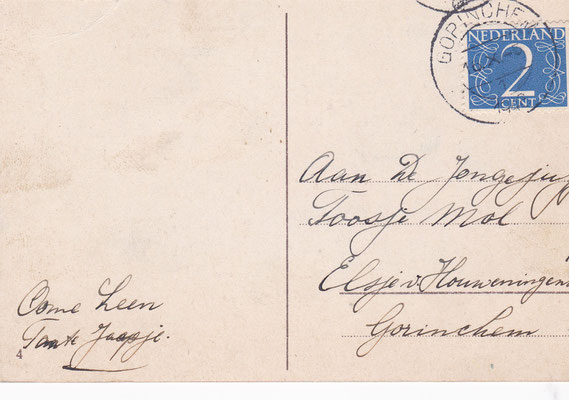 GORINCHEM
NEDERLAND
2
CENT
Aan De
Toosje Mol
Elsje v. Houweningen
Gorinchem
Oome Leen
Tante Jaapje.
4